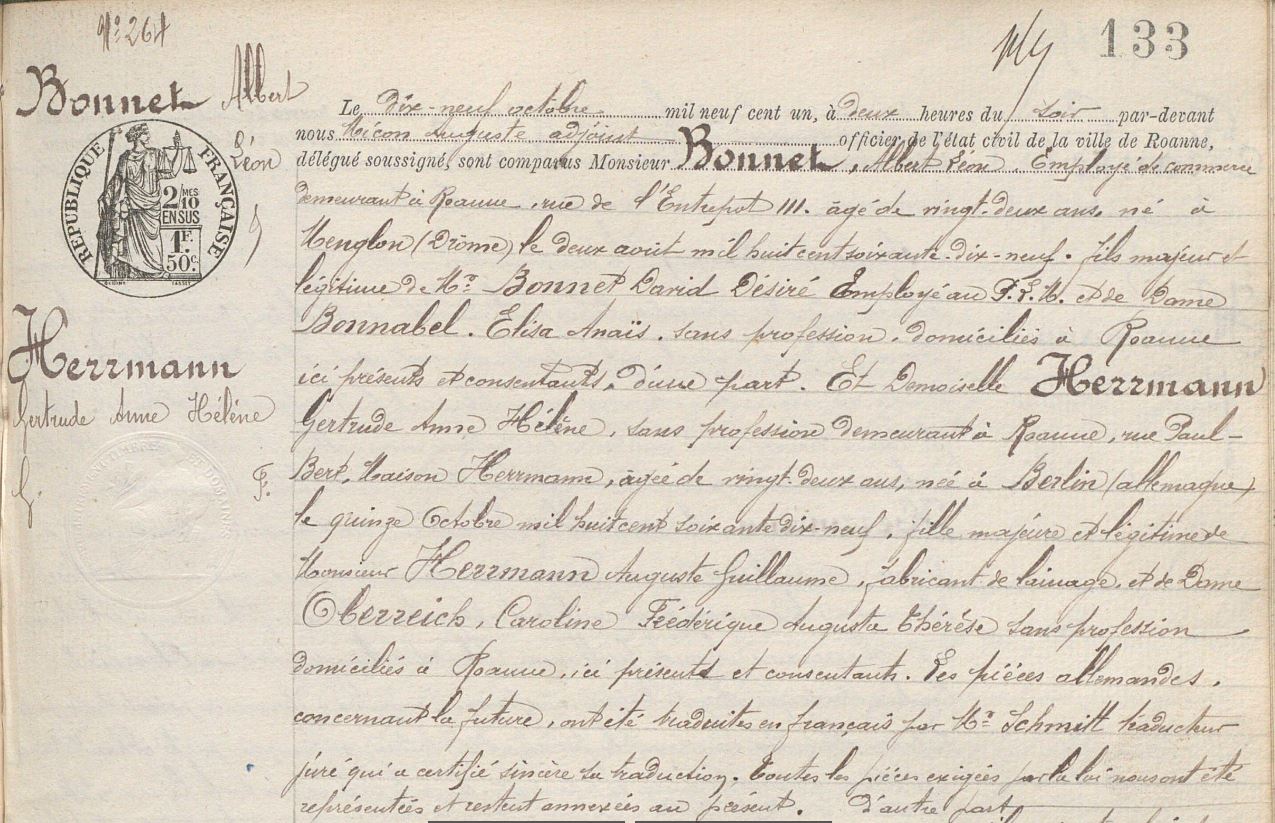 N° 264
133
Bonnet Albert
Léon
RÉPUBLIQUE FRANÇAISE
2 MES
10
EN SUS
1F.
50c.
Herrmann
Gertrude Anne Hélène
G. F.
Le dix-neuf octobre mil neuf cent un, à deux heures du soir par-devant
nous Micon Auguste adjoint officier de l'état civil de la ville de Roanne,
délégué soussigné, sont comparus Monsieur Bonnet, Albert Léon. Employé de commerce
demeurant à Roanne, rue de l'Entrepot 111. âgé de vingt-deux ans, né à
Menglon (Drôme) le deux août mil huit cent soixante-dix-neuf. fils majeur et
légitime de Mr. Bonnet David Désiré Employé au P.L.M. et de Dame
Bonnabel. Elisa Anaïs. sans profession. domiciliés à Roanne
ici présents et consentants, d'une part. Et Demoiselle Herrmann
Gertrude Anne Hélène, sans profession demeurant à Roanne, rue Paul-
Bert, Maison Herrmann, âgée de vingt-deux ans, née à Berlin (allemagne)
le quinze Octobre mil huit cent soixante dix-neuf, fille majeure et légitime de
Monsieur Herrmann Auguste Guillaume, fabricant de lainage, et de Dame
Oberreich, Caroline Frédérique Augusta Thérèse sans profession
domiciliés à Roanne, ici présents et consentants. Les pièces allemandes,
concernant la future, ont été traduites en français par Mr. Schmitt traducteur
juré qui a certifié sincère sa traduction. Toutes les pièces exigées par la loi nous ont été
représentées et restent annexées au présent. d'autre part.